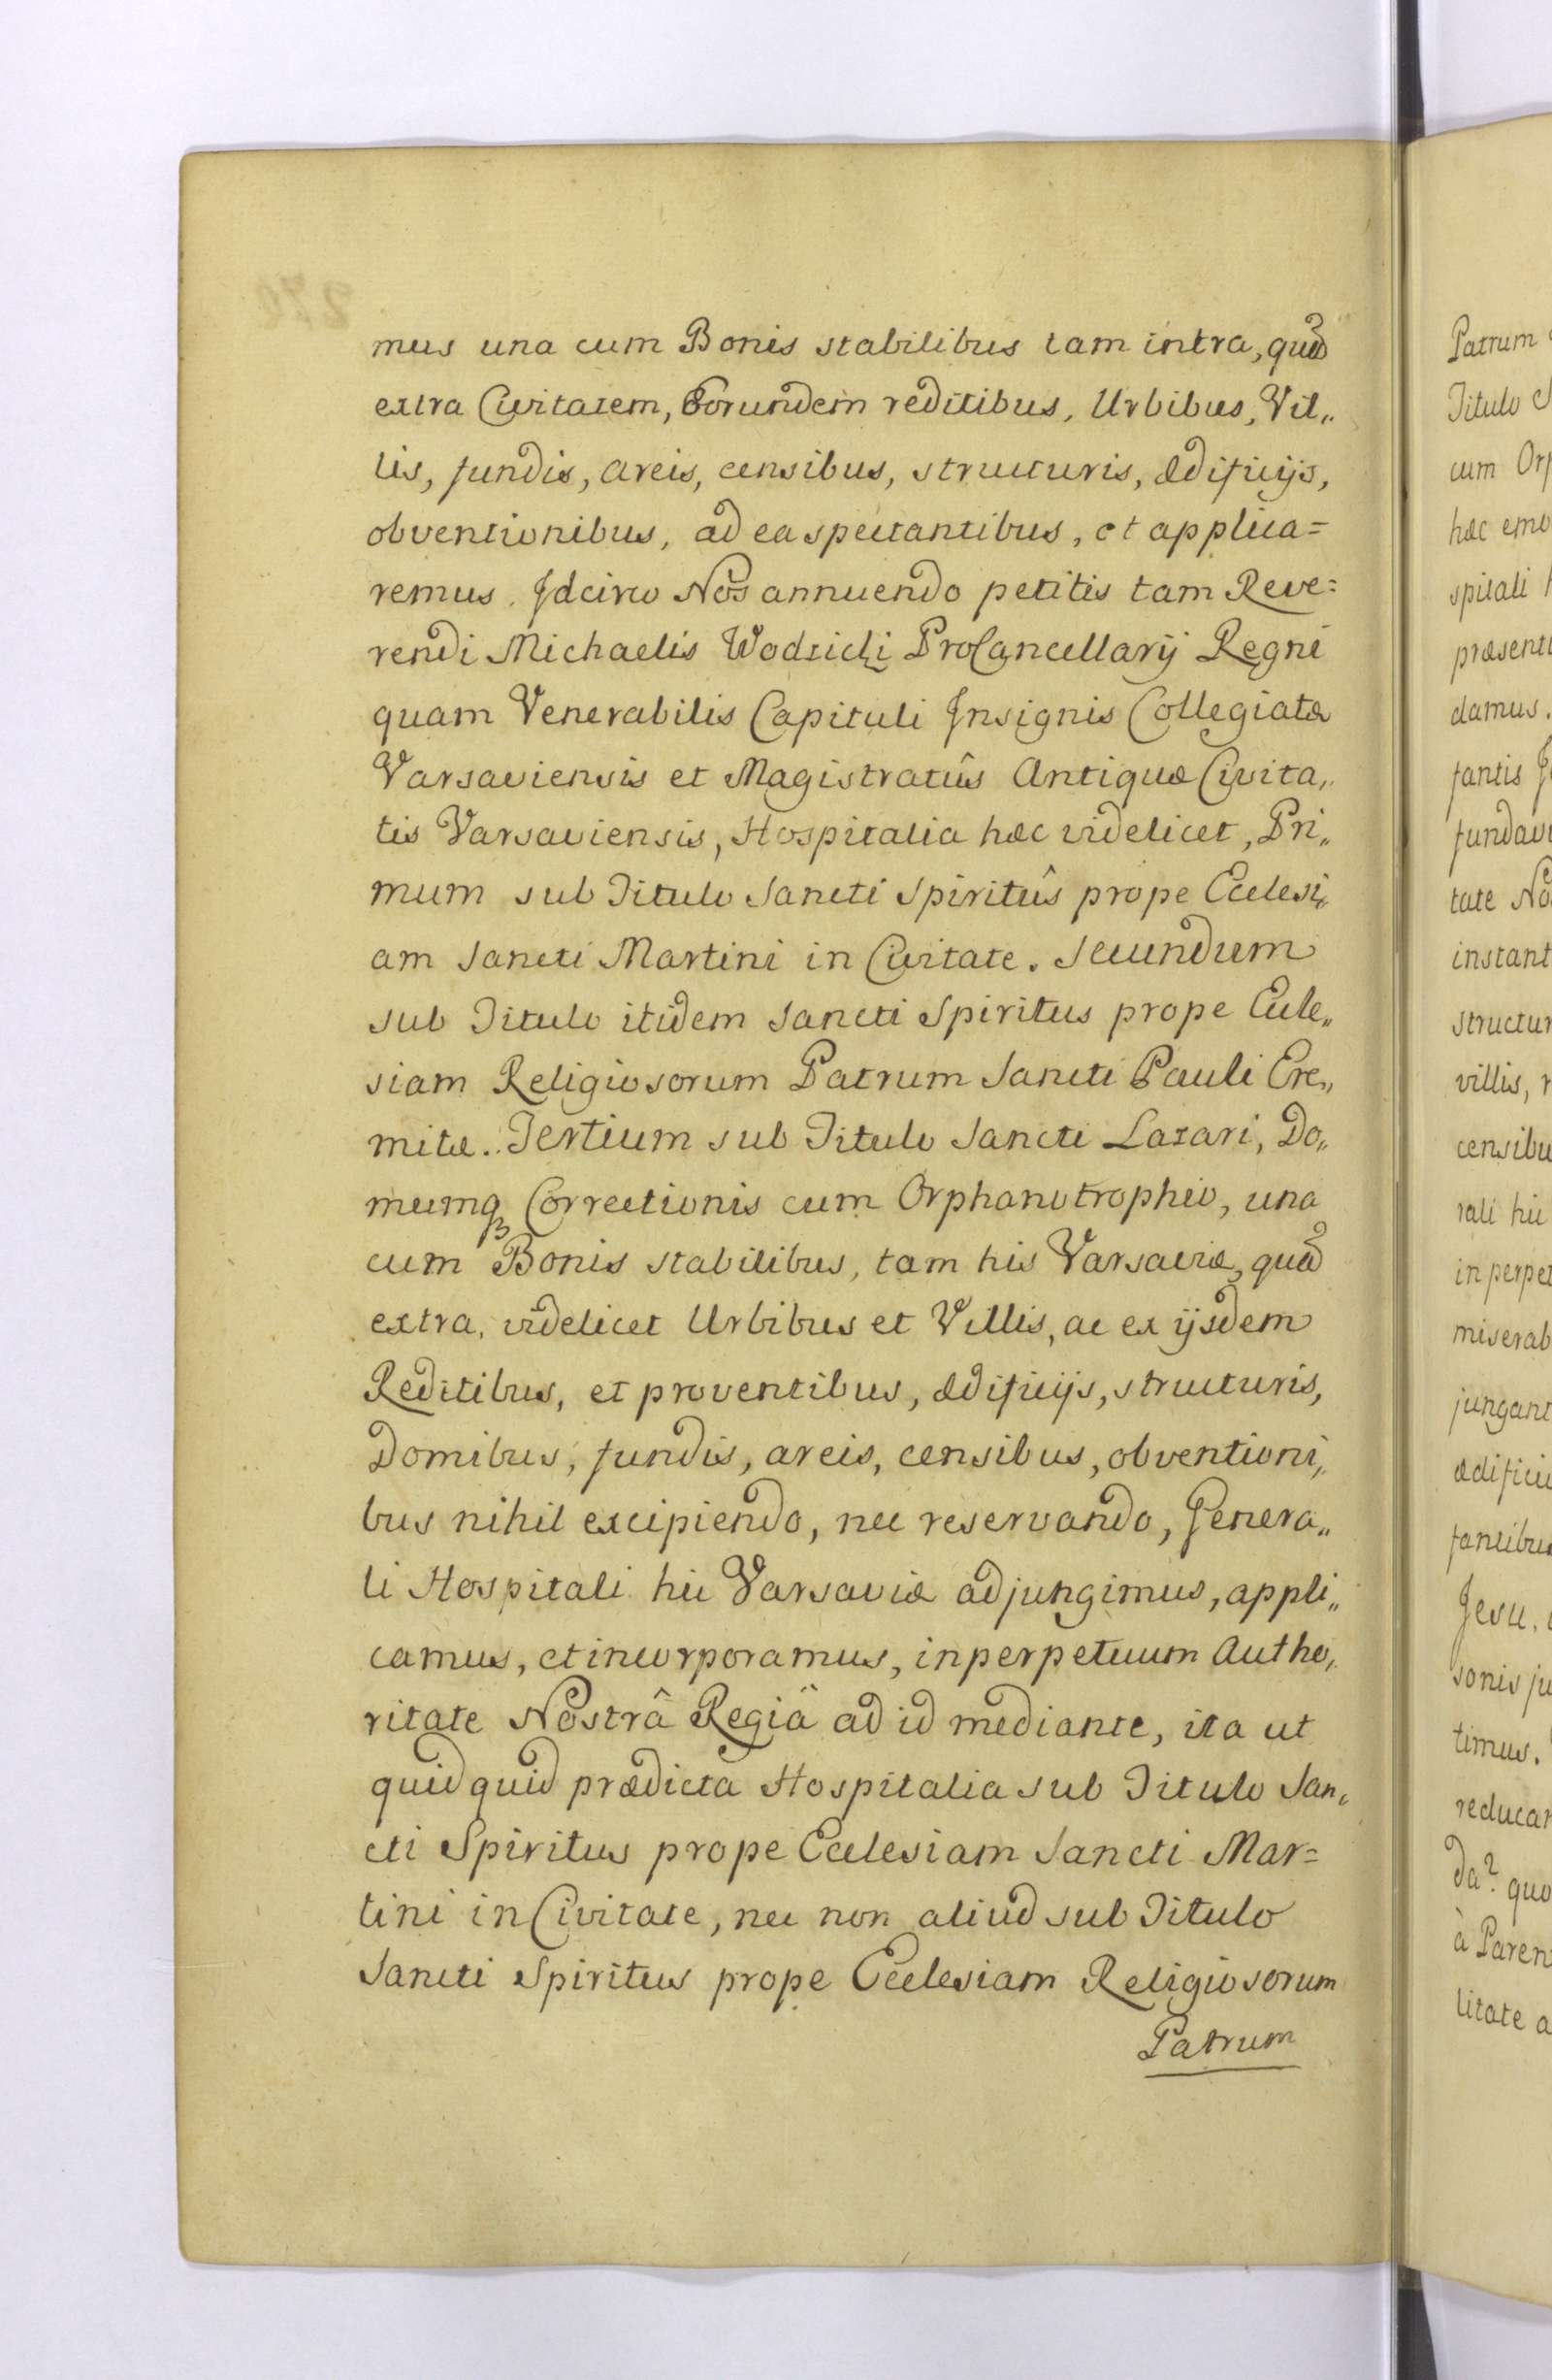 mus una cum Bonis stabilibus tam intra, quã
extra Civitatem, Eorundem reditibus, Urbibus, Vil„
lis, fundis, areis, censibus, structuris, ædificijs,
obventionibus, ad ea spectantibus, et applica=
remus. Idcirco Nos annuendo petitis tam Reve=
rendi Michaelis Wodzicki ProCancellarij Regni
quam Venerabilis Capituli Insignis Collegiatæ
Varsaviensis et Magistratûs Antiquæ Civita„
tis Varsaviensis, Hospitalia hæc videlicet, Pri„
mum sub Titulo Sancti Spiritûs prope Ecclesi„
am Sancti Martini in Civitate. Secundum
sub Titulo itidem Sancti Spiritus prope Eccle„
siam Religiosorum Patrum Sancti Pauli Ere„
mitæ. Tertium sub Titulo Sancti Lazari, Do„
mumq3 Correctionis cum Orphanotropheo, una
cum Bonis stabilibus, tam his Varsaviæ, quã
extra, videlicet Urbibus et Villis, ac ex ijsdem
Reditibus, et proventibus, ædificijs, structuris,
Domibus, fundis, areis, censibus, obventioni„
bus nihil excipiendo, nec reservando, Genera„
li Hospitali hic Varsaviæ adjungimus, appli„
camus, et incorporamus, in perpetuum Autho„
ritate Nostrâ Regiâ ad id mediante, ita ut
quidquid prædicta Hospitalia sub Titulo San„
cti Spiritus prope Ecclesiam Sancti Mar=
tini in Civitate, nec non aliud sub Titulo
Sancti Spiritus prope Ecclesiam Religiosorum
Patrum
Patrum
Titulo
cum
hæc
damus.
tate
villis,
rali hic
timus.
quo
à